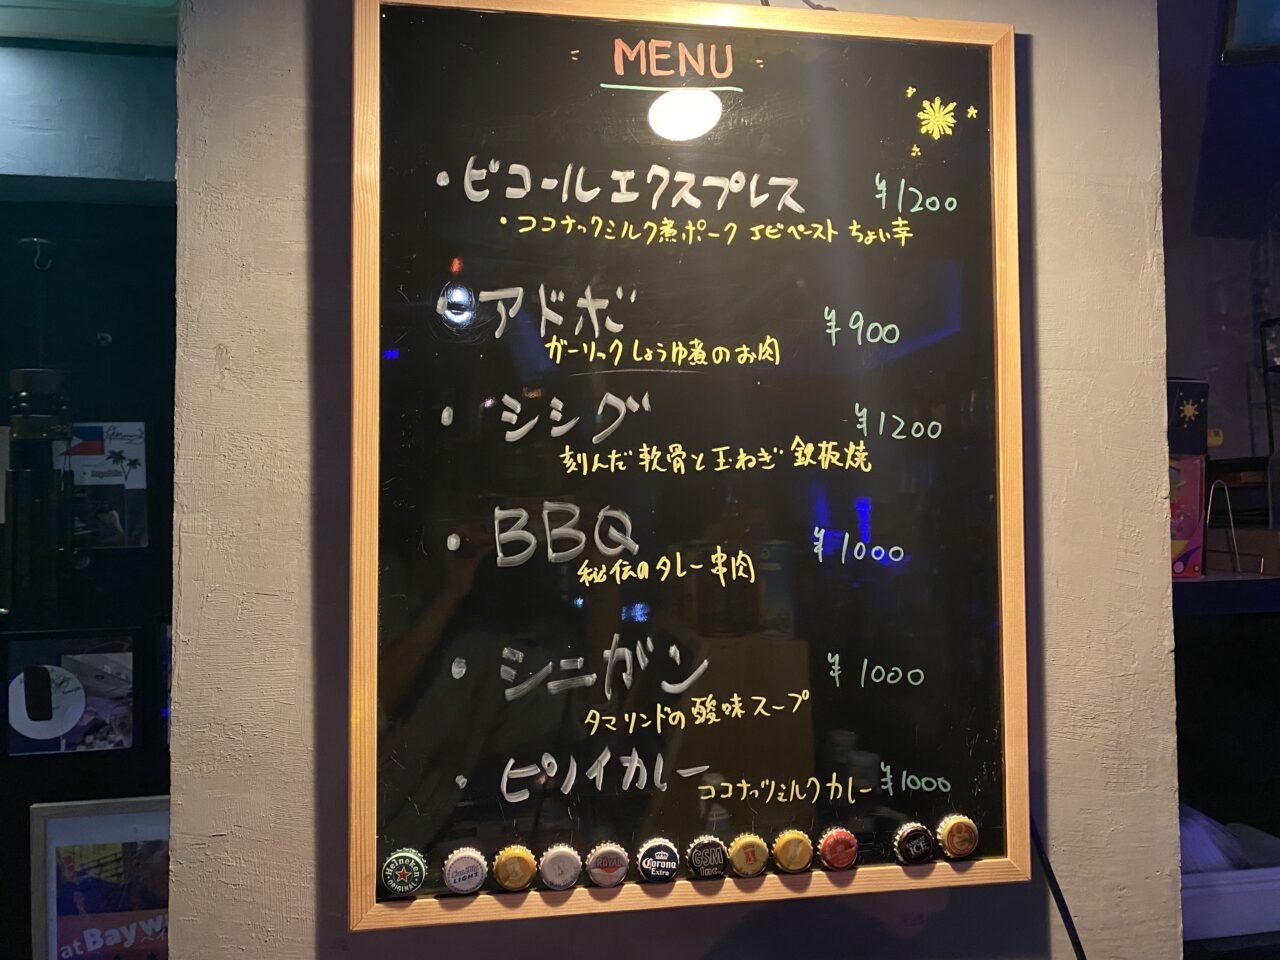 MENU
・ビコールエクスプレス ¥1200
・ココナックミルク煮ポーク エビペースト ちょい辛
・アドボ ¥900
ガーリックしょうゆ煮のお肉
・シシグ ¥1200
刻んだ軟骨と玉ねぎ 鉄板焼
・BBQ ¥1000
秘伝のタレー串肉
・シニガン ¥1000
タマリンドの酸味スープ
・ピノイカレー ココナッツミルクカレー ¥1000
Heineken
ORIGINAL
LIGHT
ROYAL
Corona
Extra
GSM
Inc.
ICE
at Bayw